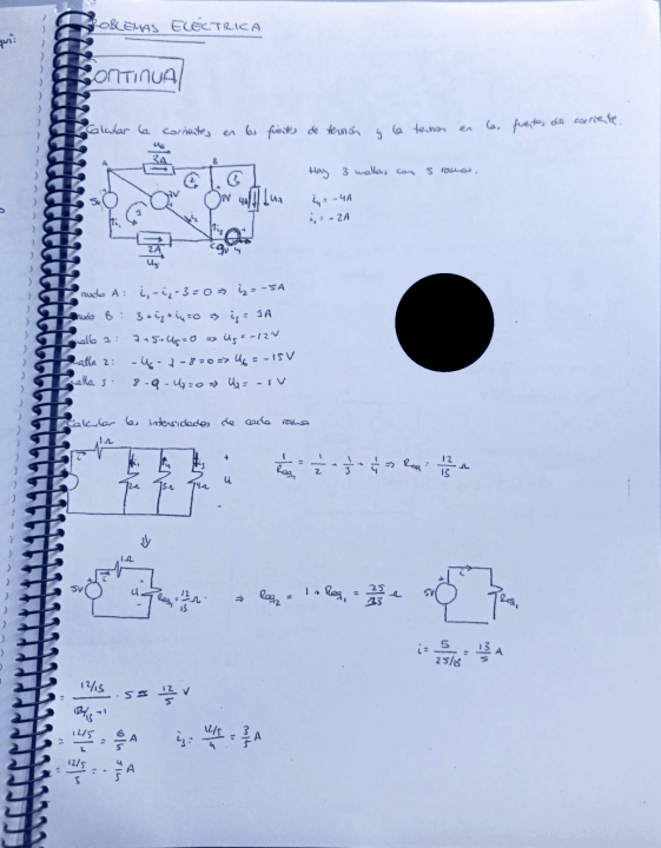 ROBLEMAS ELÉCTRICA
CONTINUA
Calcular las corrientes en las fuentes de tensión y la tension en las fuentes de corriente.
Hay 3 mallas con 5 ramas.
i₄ = -4A
i₁ = -2A
u₆
3A
A
B
2
3
5v
7V
4A
u₇
i₁
1
i₂
i₃
C
9v
2A
u₅
nudo A: i₁ - i₂ - 3 = 0 ⇒ i₂ = -5A
nudo B: 3 + i₃ + i₄ = 0 ⇒ i₃ = 1A
malla 1: 7 + 5 + u₅ = 0 ⇒ u₅ = -12V
alla 2: - u₆ - 7 - 8 = 0 ⇒ u₆ = -15V
alla 3: 8 - 9 - u₇ = 0 ⇒ u₇ = -1V
Calcular las intensidades de cada rama
1Ω
i
i₁ i₂ i₃
2Ω 3Ω 4Ω
+
u
-
1/Req₁ = 1/2 + 1/3 + 1/4 ⇒ Req₁ = 12/13 Ω
⇓
1Ω
5V
+
i
u
-
Req₁ = 12/13 Ω
⇒ Req₂ = 1 + Req₁ = 25/13 Ω
5V
+
i
Req₂
i = 5/(25/13) = 13/5 A
= (12/13)/(12/13 + 1) · 5 = 12/5 V
= (12/5)/2 = 6/5 A i₃ = (12/5)/4 = 3/5 A
= (12/5)/3 = 4/5 A